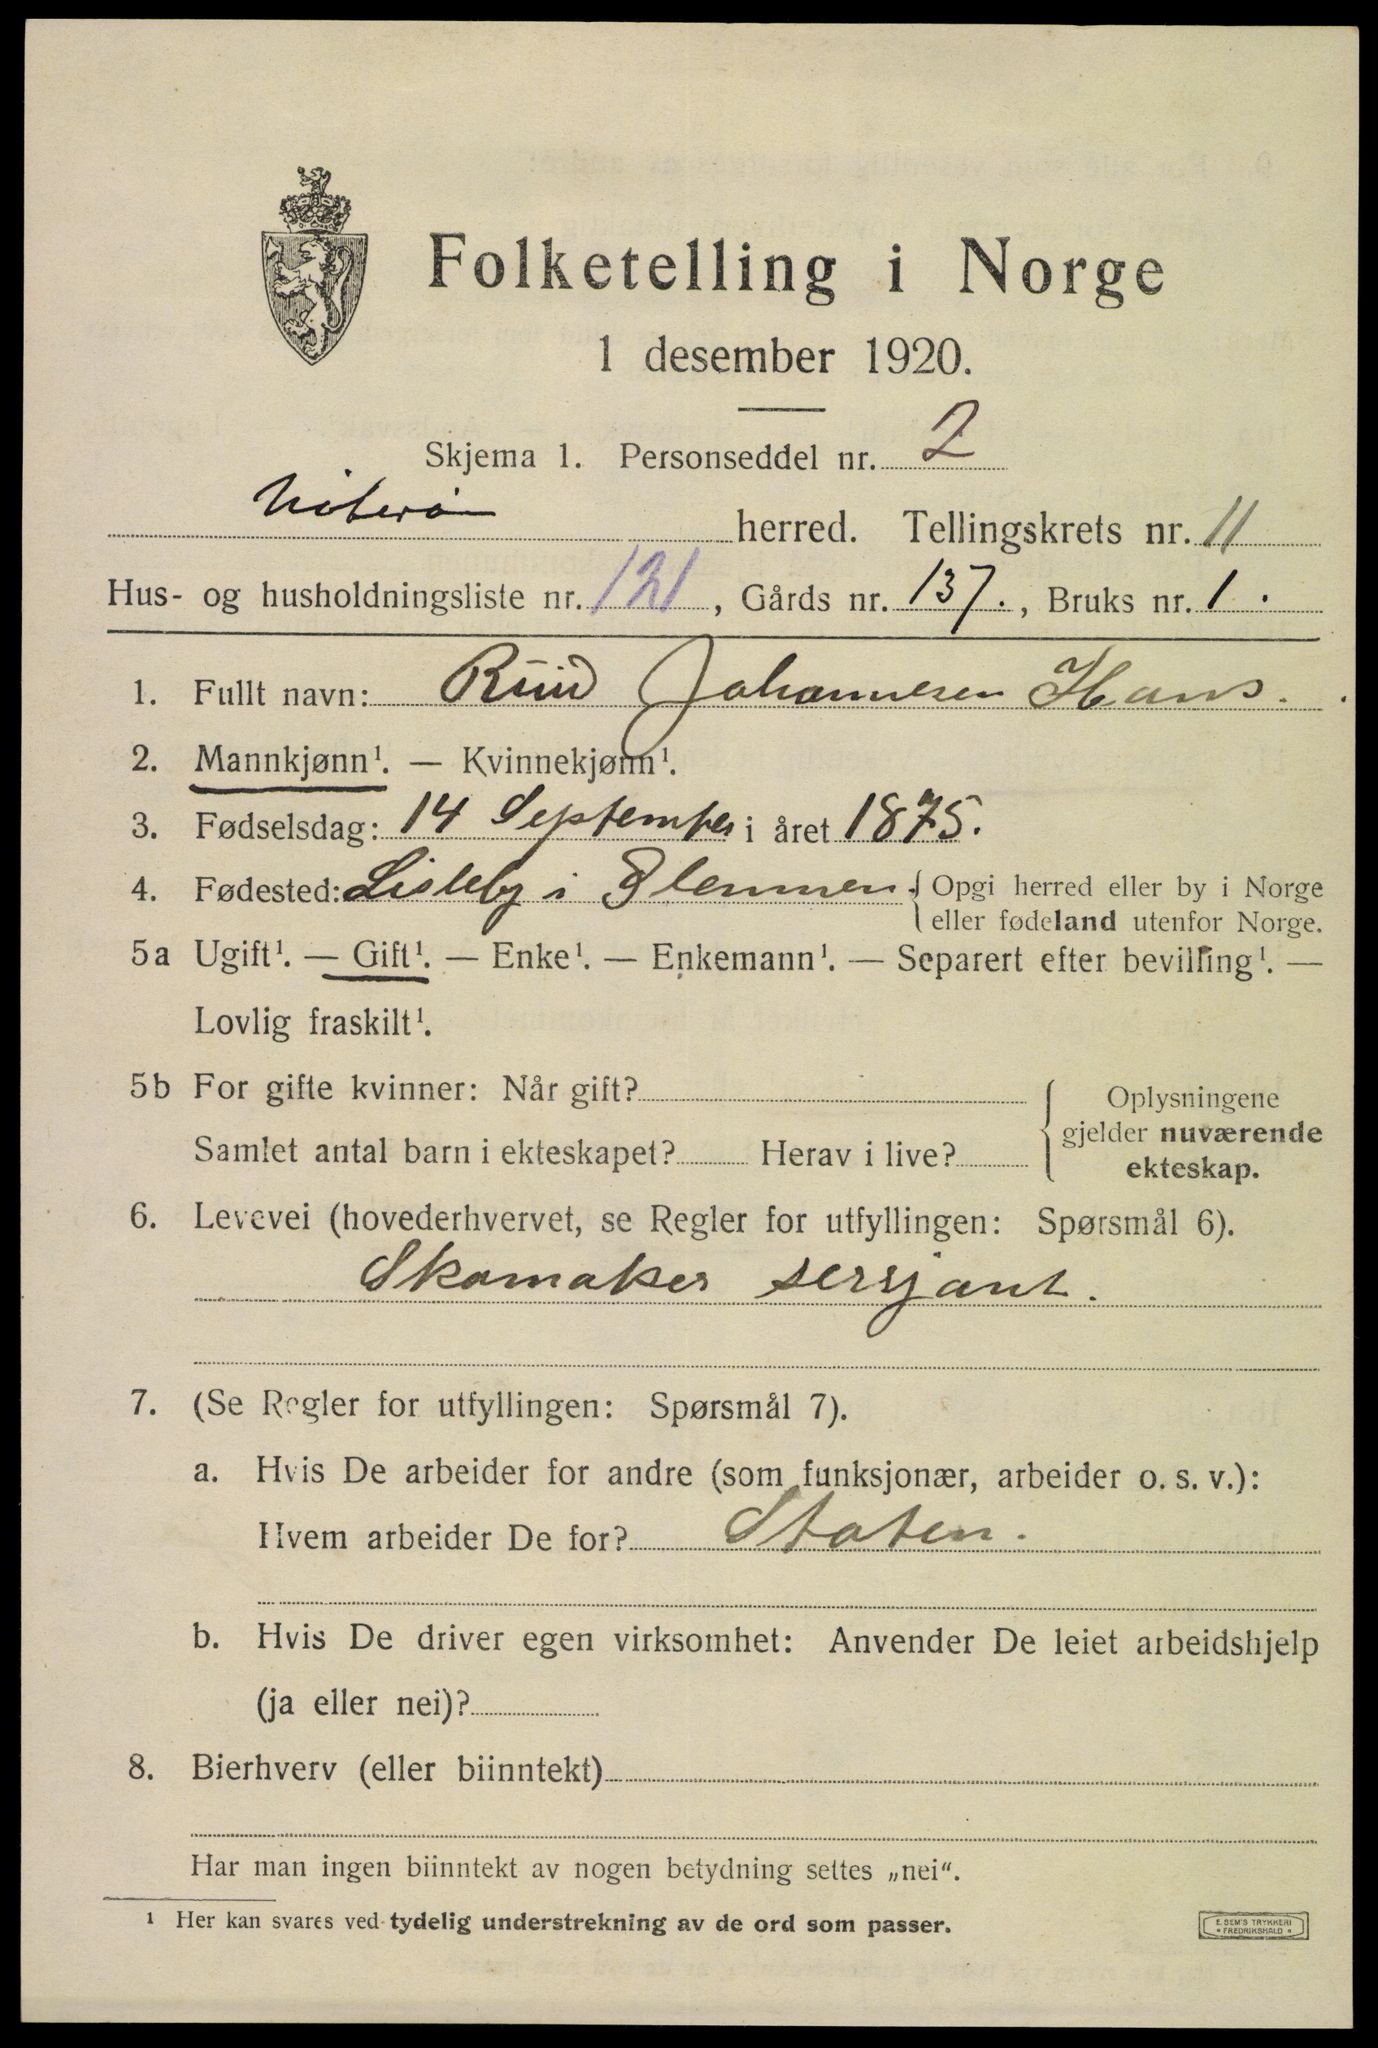 Folketelling i Norge
1 desember 1920.
Skjema 1. Personseddel nr. 2
Nøterø herred. Tellingskrets nr. 11
Hus- og husholdningsliste nr. 121, Gårds nr. 137., Bruks nr. 1.
1. Fullt navn: Ruud Johannesen Hans.
2. Mannkjønn¹. — Kvinnekjønn¹.
3. Fødselsdag: 14 September i året 1875.
4. Fødested: Lisleby i Glemmen. { Opgi herred eller by i Norge
eller fødeland utenfor Norge.
5a Ugift¹. — Gift¹. — Enke¹. — Enkemann¹. — Separert efter bevilling¹. —
Lovlig fraskilt¹.
5b For gifte kvinner: Når gift?
Samlet antal barn i ekteskapet? Herav i live?
{ Oplysningene
gjelder nuværende
ekteskap.
6. Levevei (hovederhvervet, se Regler for utfyllingen: Spørsmål 6).
Skomaker sersjant.
7. (Se Regler for utfyllingen: Spørsmål 7).
a. Hvis De arbeider for andre (som funksjonær, arbeider o. s. v.):
Hvem arbeider De for? Staten.
b. Hvis De driver egen virksomhet: Anvender De leiet arbeidshjelp
(ja eller nei)?
8. Bierhverv (eller biinntekt)
Har man ingen biinntekt av nogen betydning settes „nei“.
¹ Her kan svares ved tydelig understrekning av de ord som passer.
E. SEM'S TRYKKERI
• FREDRIKSHALD •